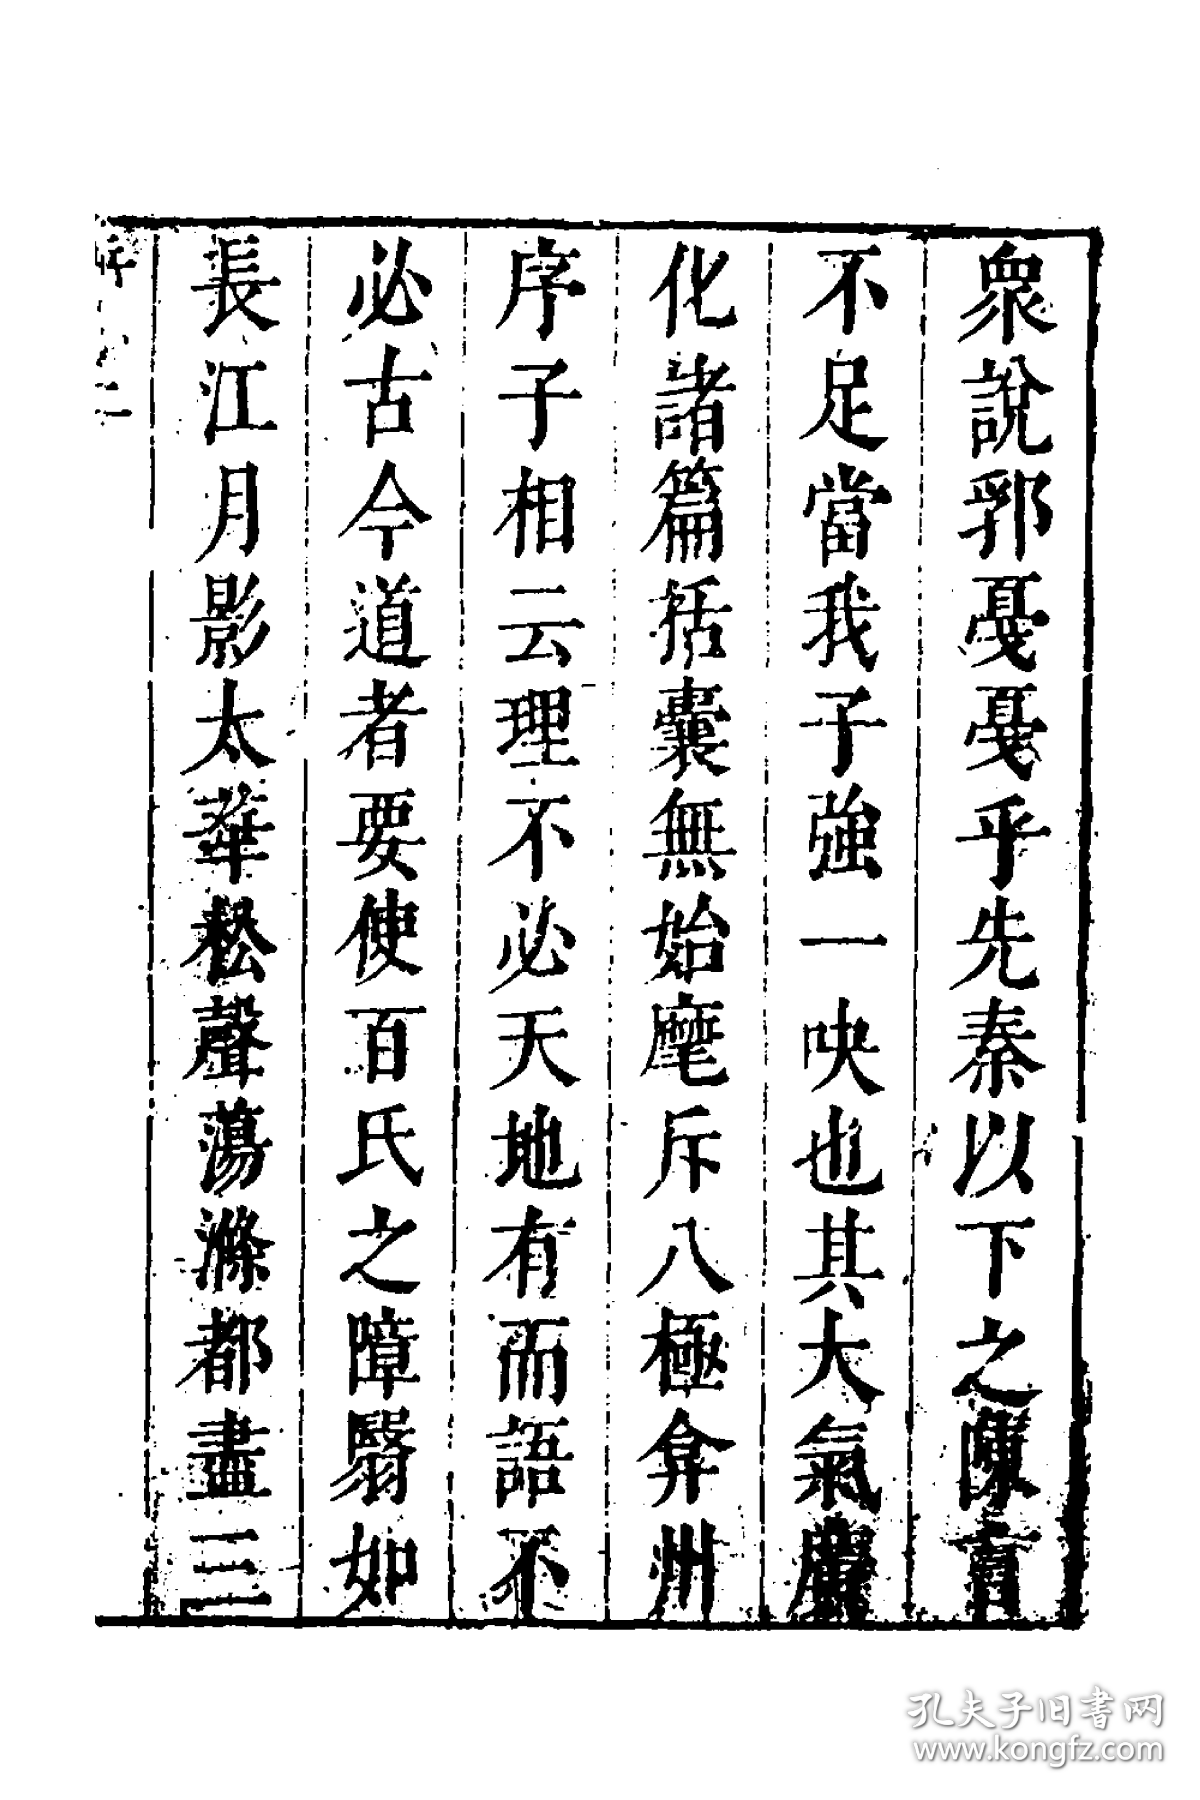 衆說郛戞戞乎先秦以下之陳言
不足當我子強一吷也其大氣
化諸篇括囊無始麾斥八極弇州
序子相云理不必天地有而語不
必古今道者要使百氏之障翳如
長江月影太華松聲蕩滌都盡三
孔夫子旧书网
www.kongfz.com